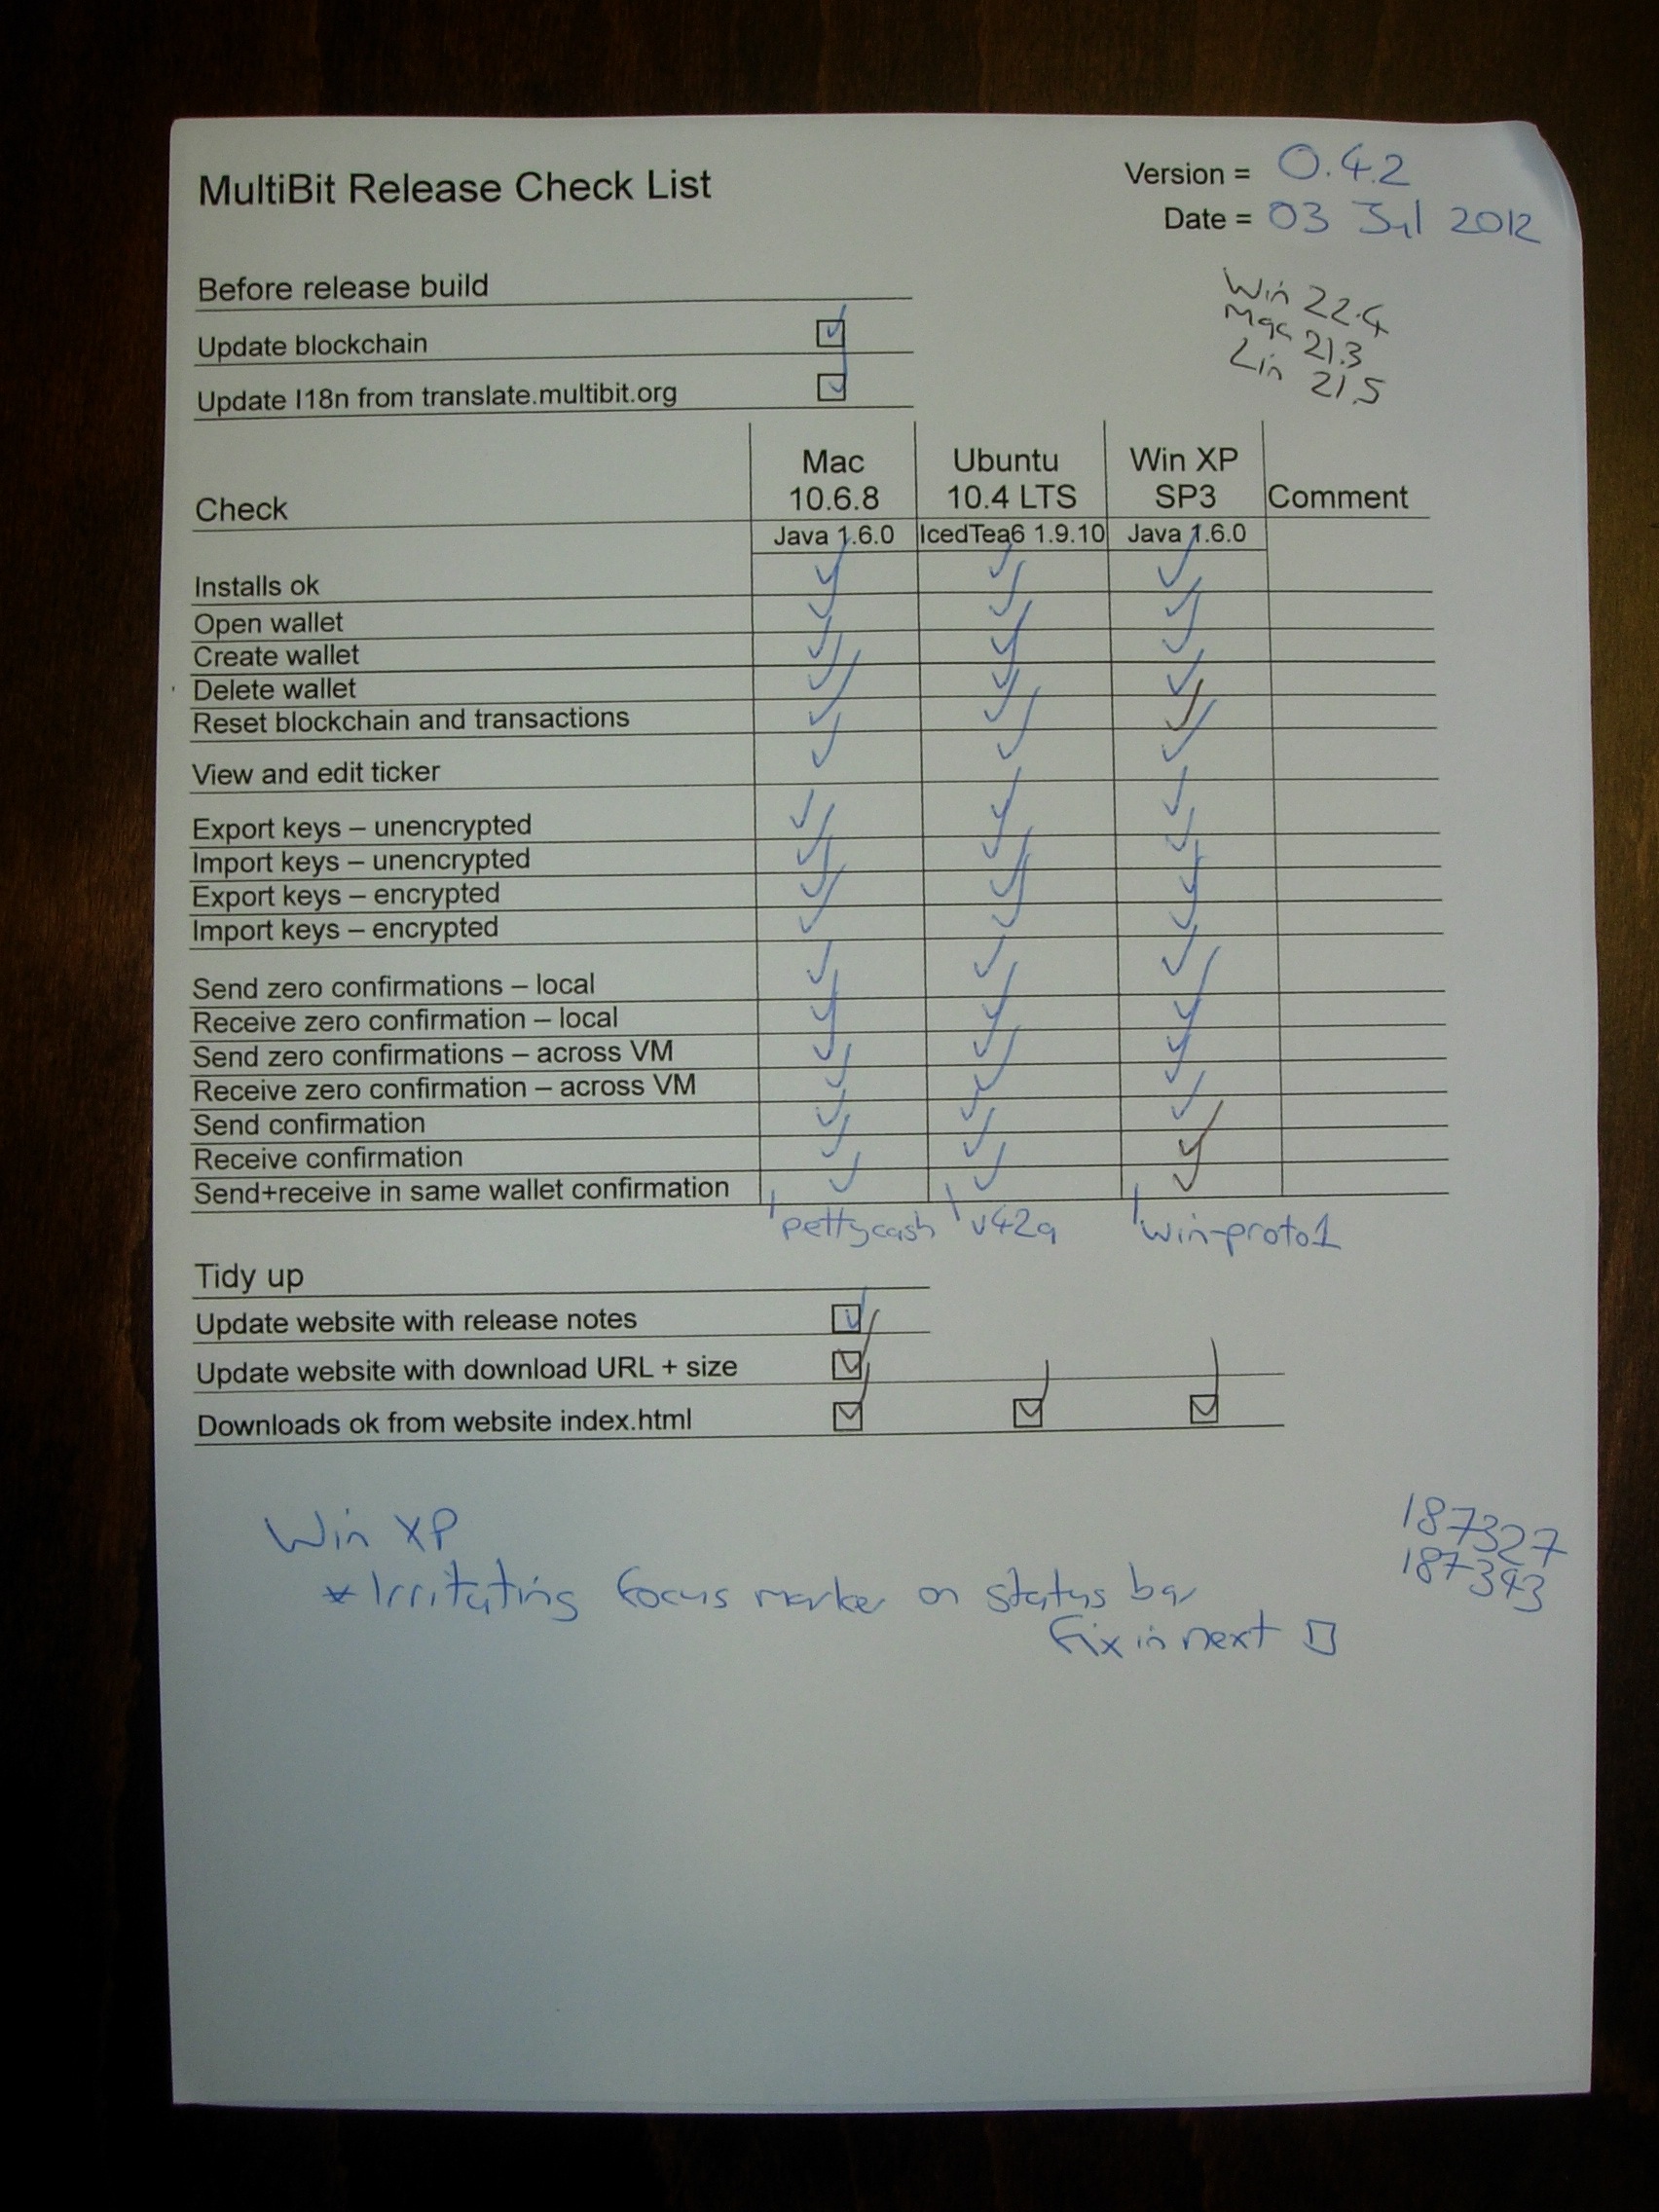 MultiBit Release Check List
Version = 0.4.2
Date = 03 Jul 2012
Win 22.4
Mac 21.3
Lin 21.5
Before release build
Update blockchain ☑
Update I18n from translate.multibit.org ☑
Check
Mac 10.6.8
Ubuntu 10.4 LTS
Win XP SP3
Comment
Java 1.6.0 IcedTea6 1.9.10 Java 1.6.0
Installs ok ✓ ✓ ✓
Open wallet ✓ ✓ ✓
Create wallet ✓ ✓ ✓
Delete wallet ✓ ✓ ✓
Reset blockchain and transactions ✓ ✓ ✓
View and edit ticker ✓ ✓ ✓
Export keys – unencrypted ✓ ✓ ✓
Import keys – unencrypted ✓ ✓ ✓
Export keys – encrypted ✓ ✓ ✓
Import keys – encrypted ✓ ✓ ✓
Send zero confirmations – local ✓ ✓ ✓
Receive zero confirmation – local ✓ ✓ ✓
Send zero confirmations – across VM ✓ ✓ ✓
Receive zero confirmation – across VM ✓ ✓ ✓
Send confirmation ✓ ✓ ✓
Receive confirmation ✓ ✓ ✓
Send+receive in same wallet confirmation ✓ ✓ ✓
pettycash v42a win-proto1
Tidy up
Update website with release notes ☑
Update website with download URL + size ☑
Downloads ok from website index.html ☑ ☑ ☑
Win XP
* Irritating focus marker on status bar
Fix in next ☐
187327
187343